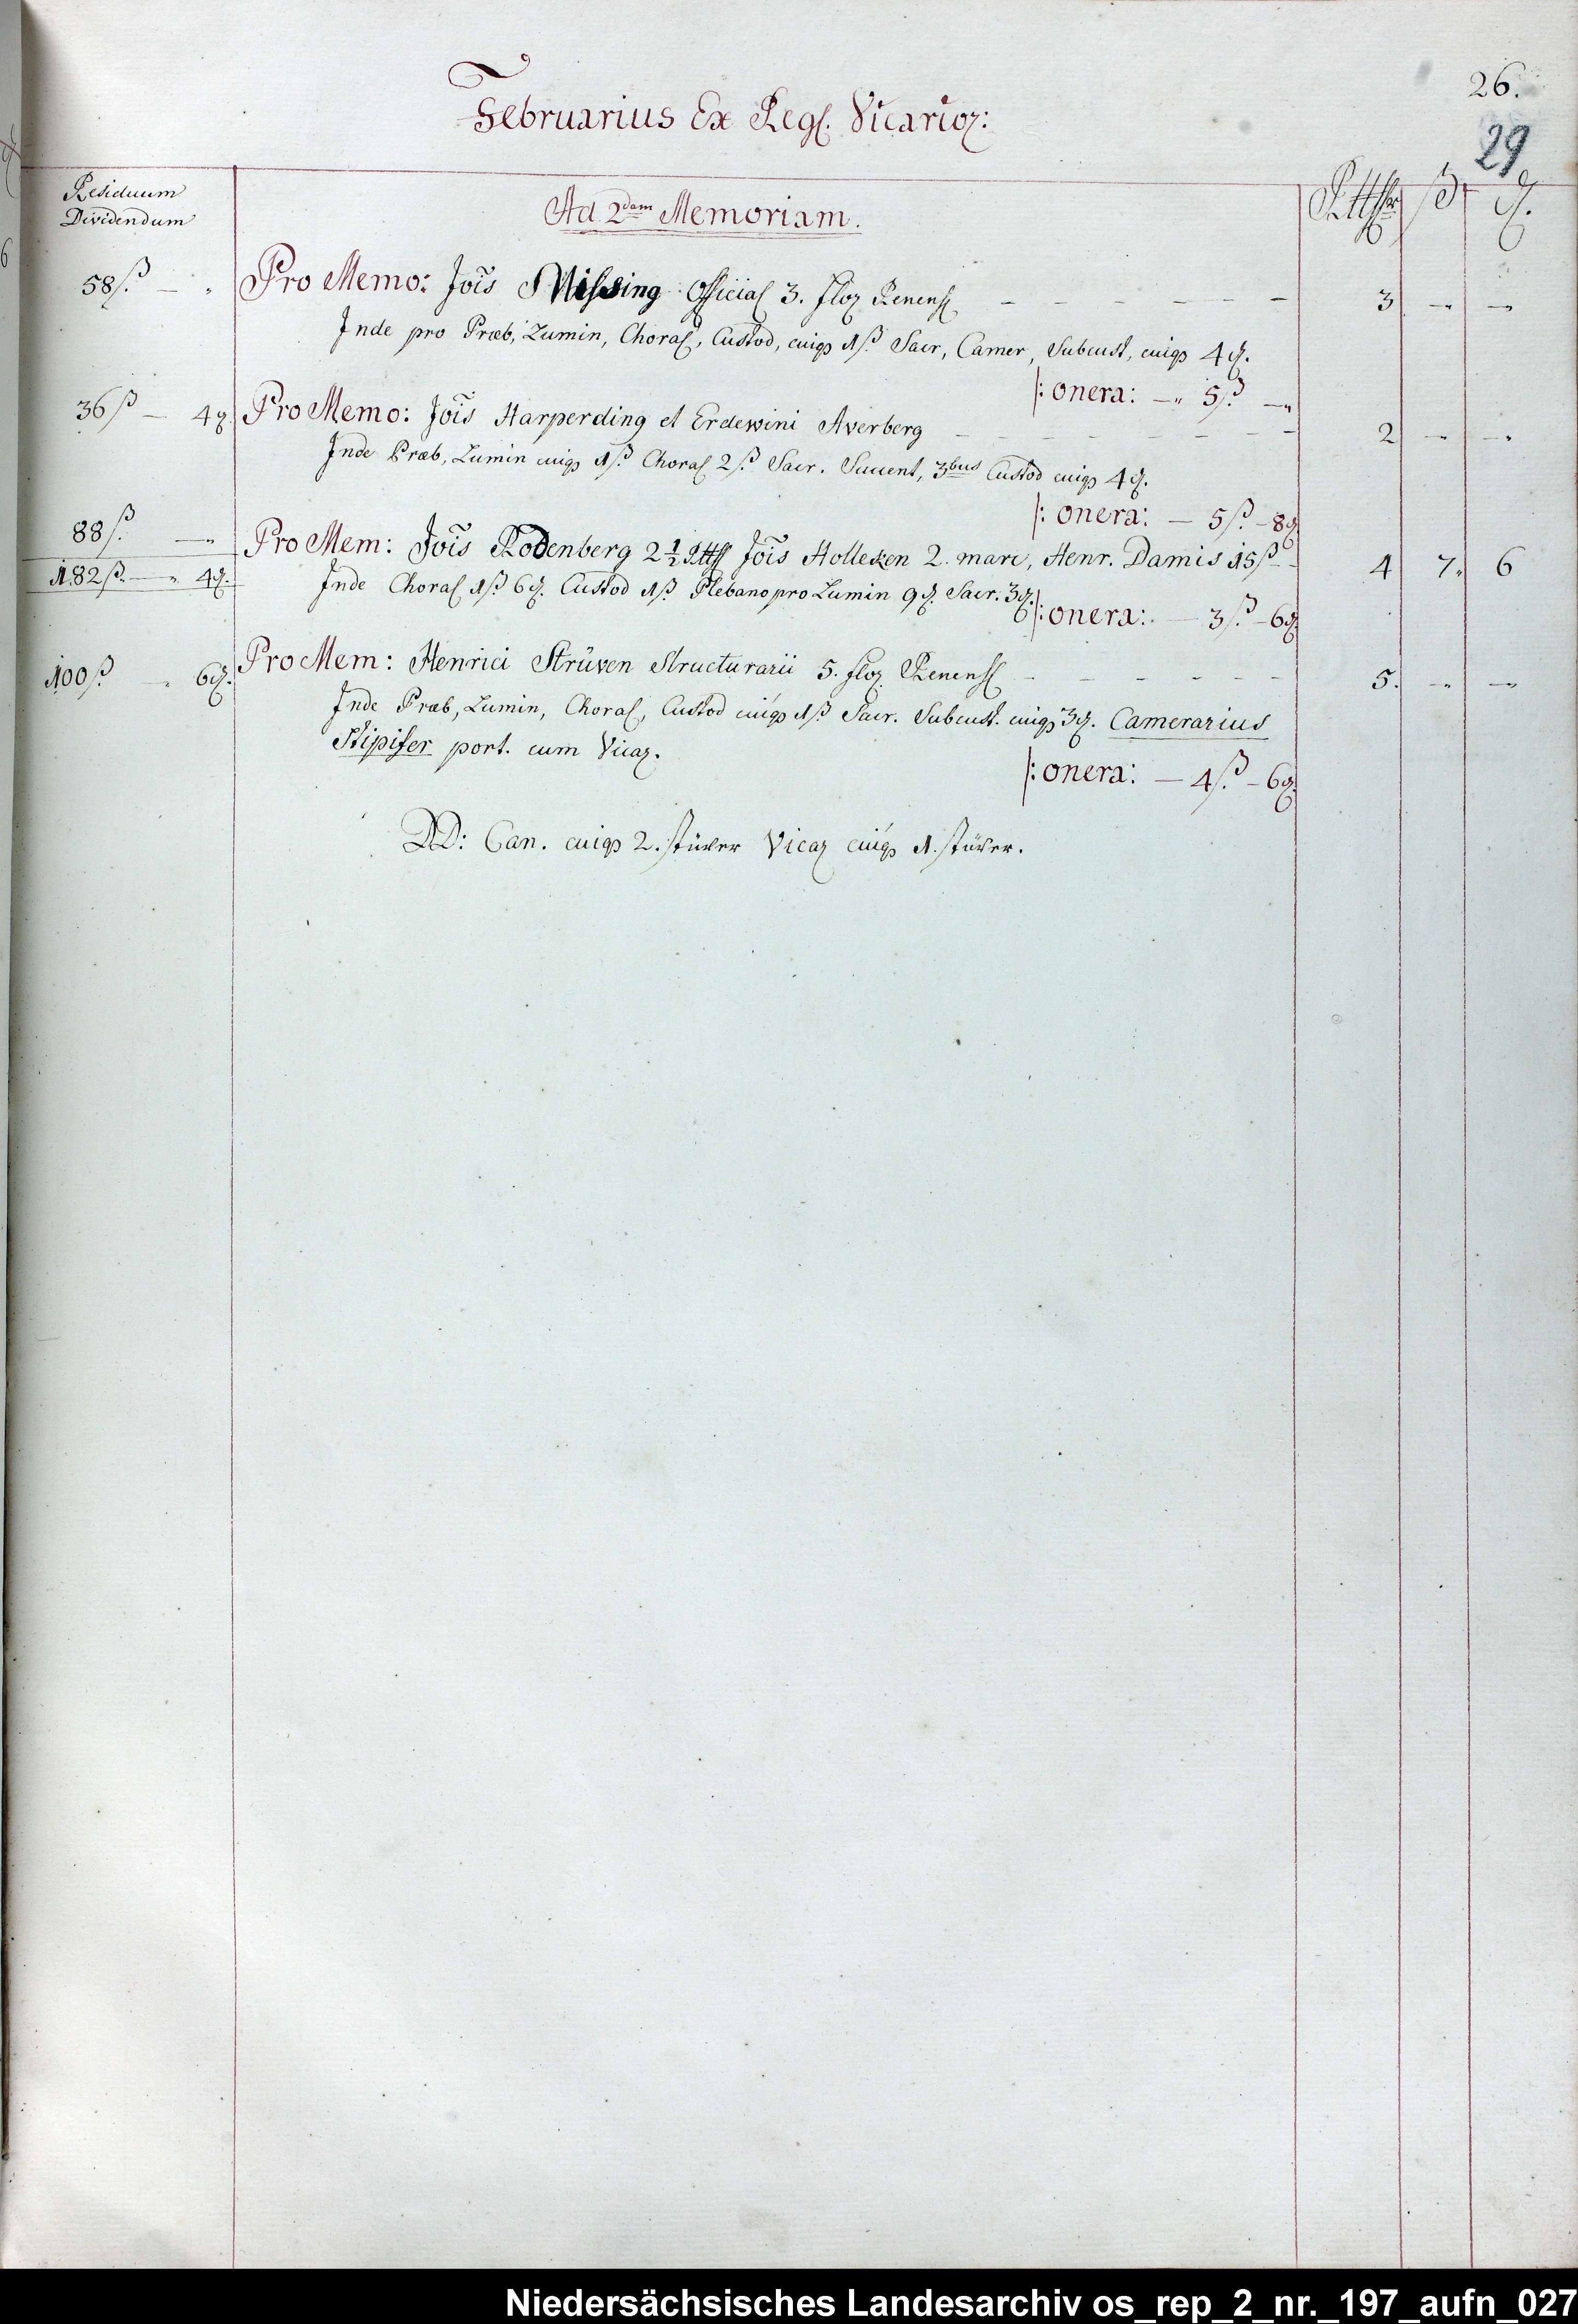 26.
29
Februarius Ex Reg. Vicarior:
Residuum
Dividendum
Ad 2dam Memoriam.
Rttlr ß ₰.
58ß. — „ Pro Memo: Jois Missing Official 3. flor Renens — — — 3 — „ — „
Inde pro Præb, Lumin, Choral, Custod, cuiqs 1ß. Sacr, Camer, Subcust, cuiqs 4₰.
/: onera: — „ 5ß. — „
36ß — 4₰. Pro Memo: Jois Harperding et Erdewini Averberg — — — 2 — „ — „
Inde Præb, Lumin cuiqs 1ß. Choral 2ß. Sacr. Succent, 3bus Custod cuiqs 4₰.
/: onera: — 5ß. — 8₰
88ß. — „ Pro Mem: Jois Rodenberg 2½ Rttl Jois Holleken 2. marc, Henr. Damis 15ß — 4 7. 6
182ß. — „ 4₰. Inde Choral 1ß. 6₰. Custod 1ß. Plebano pro Lumin 9₰. Sacr. 3₰.
/: onera: — 3ß. — 6₰.
100ß. — „ 6₰. Pro Mem: Henrici Strüven Structurarii 5. flor. Renens — — — 5. — „ — „
Inde Præb, Lumin, Choral, Custod cuiqs 1ß. Sacr. Subcust. cuiqs 3₰. Camerarius
Stipifer port. cum Vicar.
/: onera: — 4ß. — 6₰.
DD: Can. cuiqs 2. stüver Vicar cuiqs 1. stüver.
Niedersächsisches Landesarchiv os_rep_2_nr._197_aufn_027